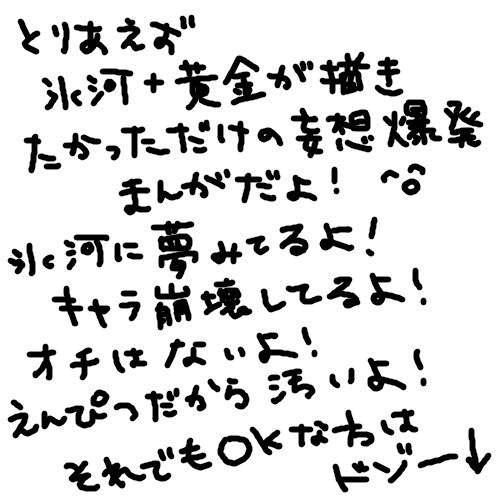 とりあえず
氷河+黄金が描き
たかっただけの妄想爆発
まんがだよ! ^o^
氷河に夢みてるよ!
キャラ崩壊してるよ!
オチはないよ!
えんぴつだから汚いよ!
それでもOKな方は
ドゾー↓